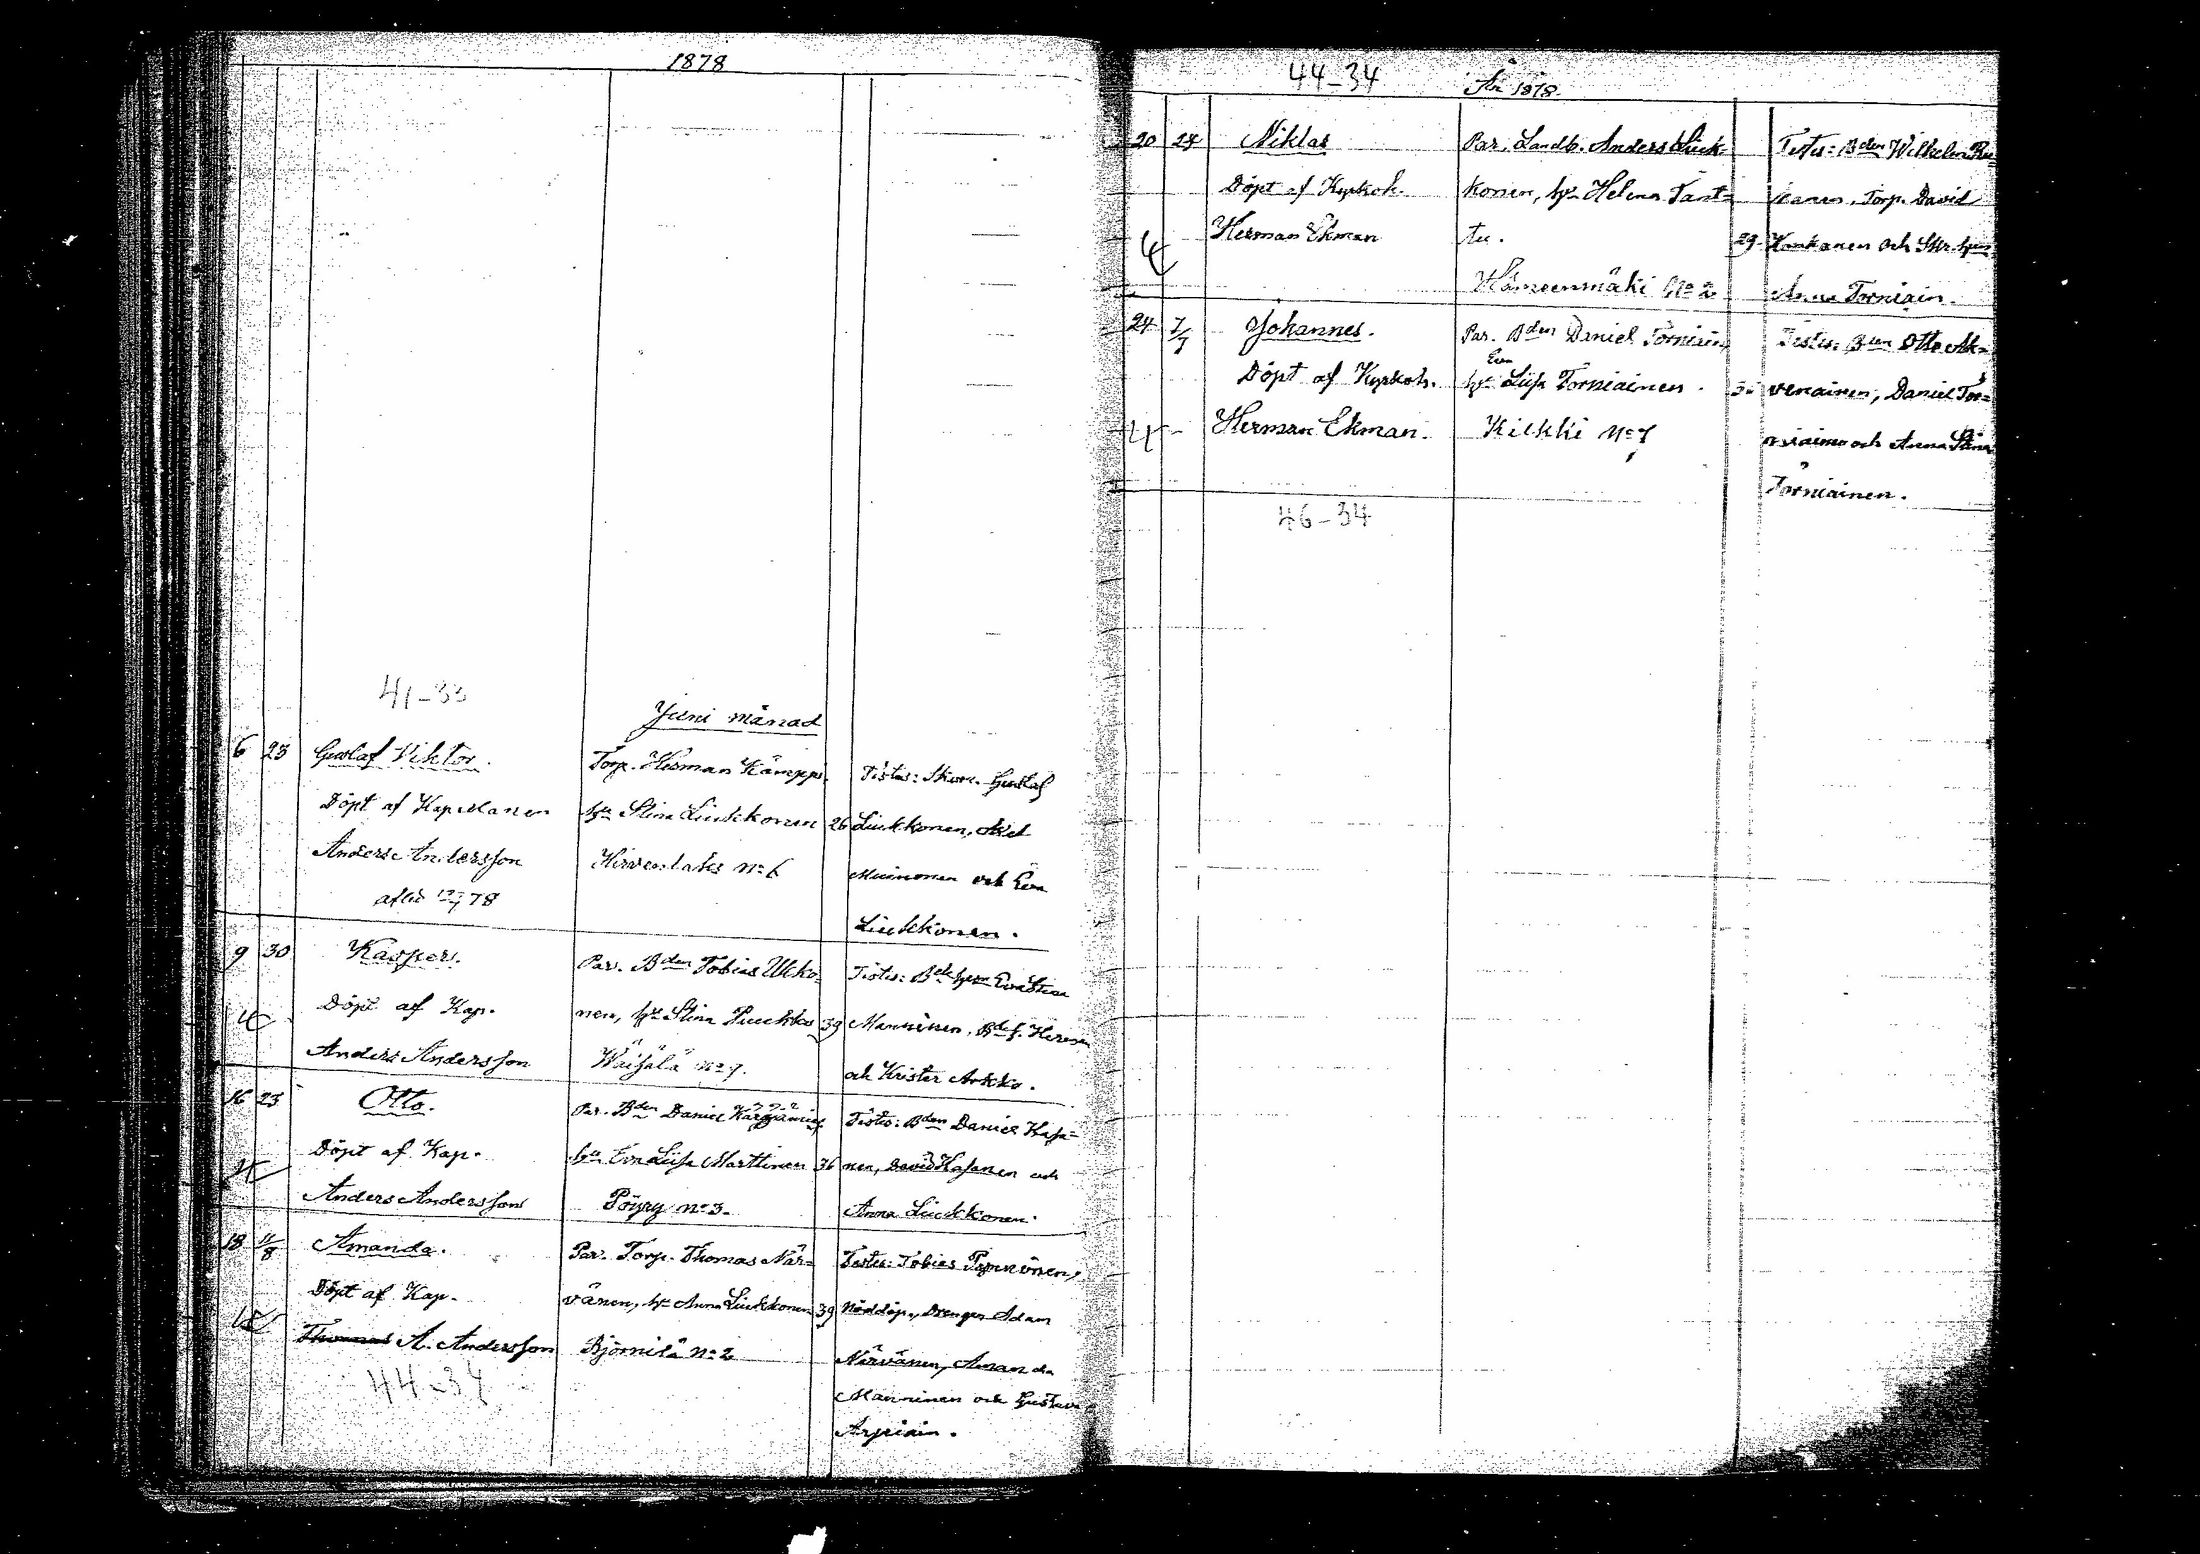 1878
41-33
Juni månad
6 23 Gustaf Viktor. Torp. Herman Kämppi. Testes: Skom. Gustaf
Döpt af Kapellanen hu Stina Liukkonen 26 Liukkonen, Axel
Anders Andersson Hirvenlaks No 6 Muinonen och Eva
78
Liukkonen.
9 30 Kasper. Par. Bden Tobias Ukko-
Testes: Bde hrn Eva Stina
Döpt af Kap. nen, hu Stina Puukko 39 Manninen, Bdes.
Anders Andersson Wäisälä No 7. och Krister Arkko.
16 23 Otto. Par. Bden Daniel
Testes: Bden Daniel Hasa-
Döpt af Kap. hu Eva Lisa Marttinen 36 nen, David Hasanen och
Anders Andersson Pöyry No 3. Anna Liukkonen.
18 11/8 Amanda. Par. Torp. Thomas När-
Testes: Tobias
Döpt af Kap. vänen, hu Anna Liukkonen 39 Nöddöp., Drengen Adam
Thomas A. Andersson Björnilä No 2 Närvänen, Amanda
44-34
Manninen och Gustava
Arpiain.
44-34 År 1878.
20 24 Niklas Par. Landb. Anders Liuk-
Testes: Bden Wilhelm
Döpt af Kyrkoh. konen, hu Helena Tant-
Torp. David
Herman Ekman tu. 29 Kankanen och
Hämeenmäki No 2 Anna Torniain.
24 7/7 Johannes. Par. Bden Daniel Torniain,
Testes: Bden Otto Ah-
Eva
Döpt af Kyrkoh. hu Lisa Torniainen. venainen, Daniel Tor-
Herman Ekman. Kilkki No 7 niainen och Anna Stina
Torniainen.
46-34